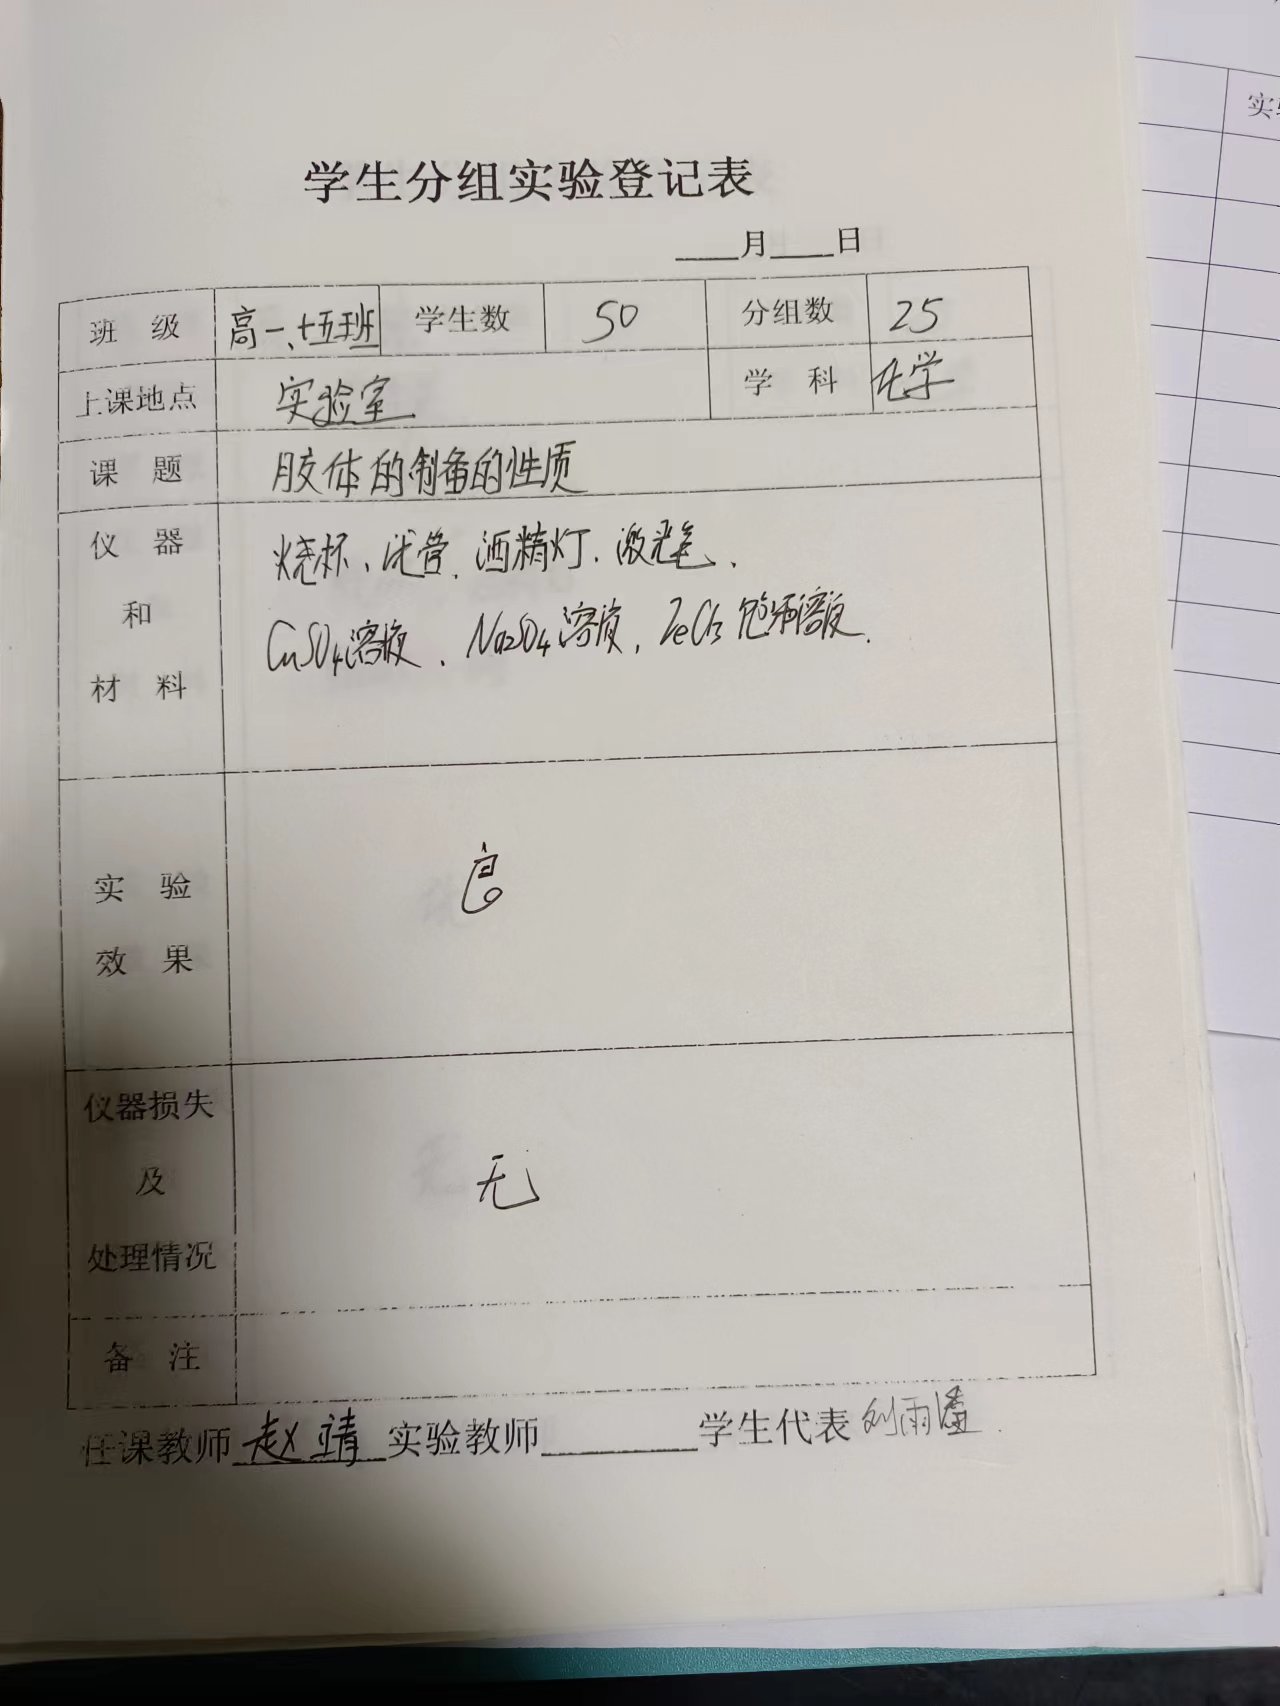 学生分组实验登记表
____月____日
班 级 高一、十五班 学生数 50 分组数 25
上课地点 实验室 学 科 化学
课 题 胶体的制备的性质
仪 器 和 材 料
烧杯、试管、酒精灯、激光笔、
CuSO4溶液、Na2SO4溶液、FeCl3饱和溶液.
实 验 效 果 良
仪器损失 及 处理情况 无
备 注
任课教师 赵靖 实验教师______ 学生代表 刘雨
实